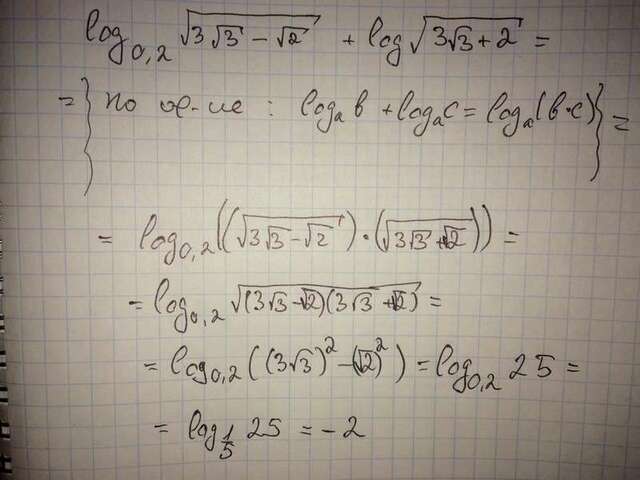 log₀,₂ √(3√3 − √2) + log √(3√3 + 2) =
= } по св-ие : logₐ в + logₐ c = logₐ (в·c) } =
= log₀,₂ ((√(3√3 − √2)) · (√(3√3 + √2))) =
= log₀,₂ √((3√3 − √2)(3√3 + √2)) =
= log₀,₂ ((3√3)² − (√2)²) = log₀,₂ 25 =
= log_(1/5) 25 = −2